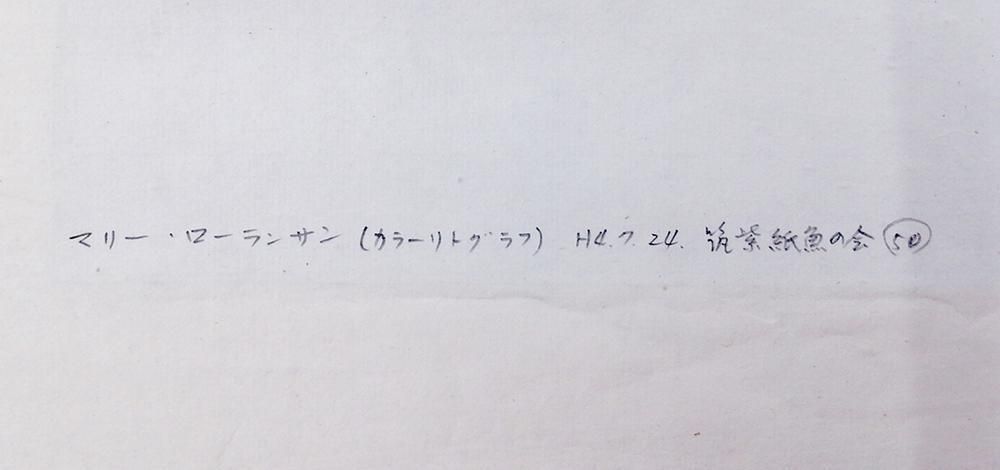 マリー・ローランサン (カラーリトグラフ) H4.7.24. 筑紫紙魚の会 50